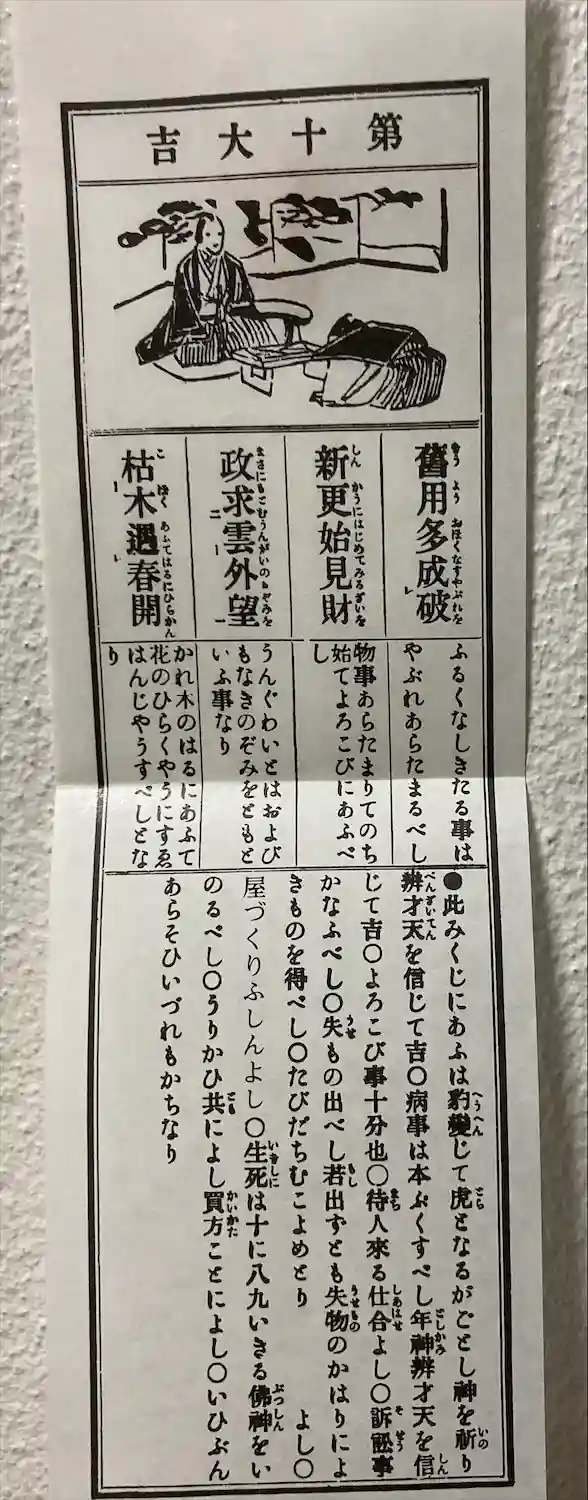 第十大吉
舊用多成破
新更始見財
政求雲外望
枯木遇春開
ふるくなしきたる事は
やぶれあらたまるべし
物事あらたまりてのち
始てよろこびにあふべ
し
うんぐわいとはおよび
もなきのぞみをともと
いふ事なり
かれ木のはるにあふて
花のひらくやうにすゑ
はんじやうすべしとな
り
●此みくじにあふは豹變じて虎となるがごとし神を祈り
辨才天を信じて吉○病事は本ぷくすべし年神辨才天を信
じて吉○よろこび事十分也○待人來る仕合よし○訴訟事
かなふべし○失もの出べし若出ずとも失物のかはりによ
きものを得べし○たびだちむこよめとり よし○
屋づくりふしんよし○生死は十に八九いきる佛神をい
のるべし○うりかひ共によし買方ことによし○いひぶん
あらそひいづれもかちなり